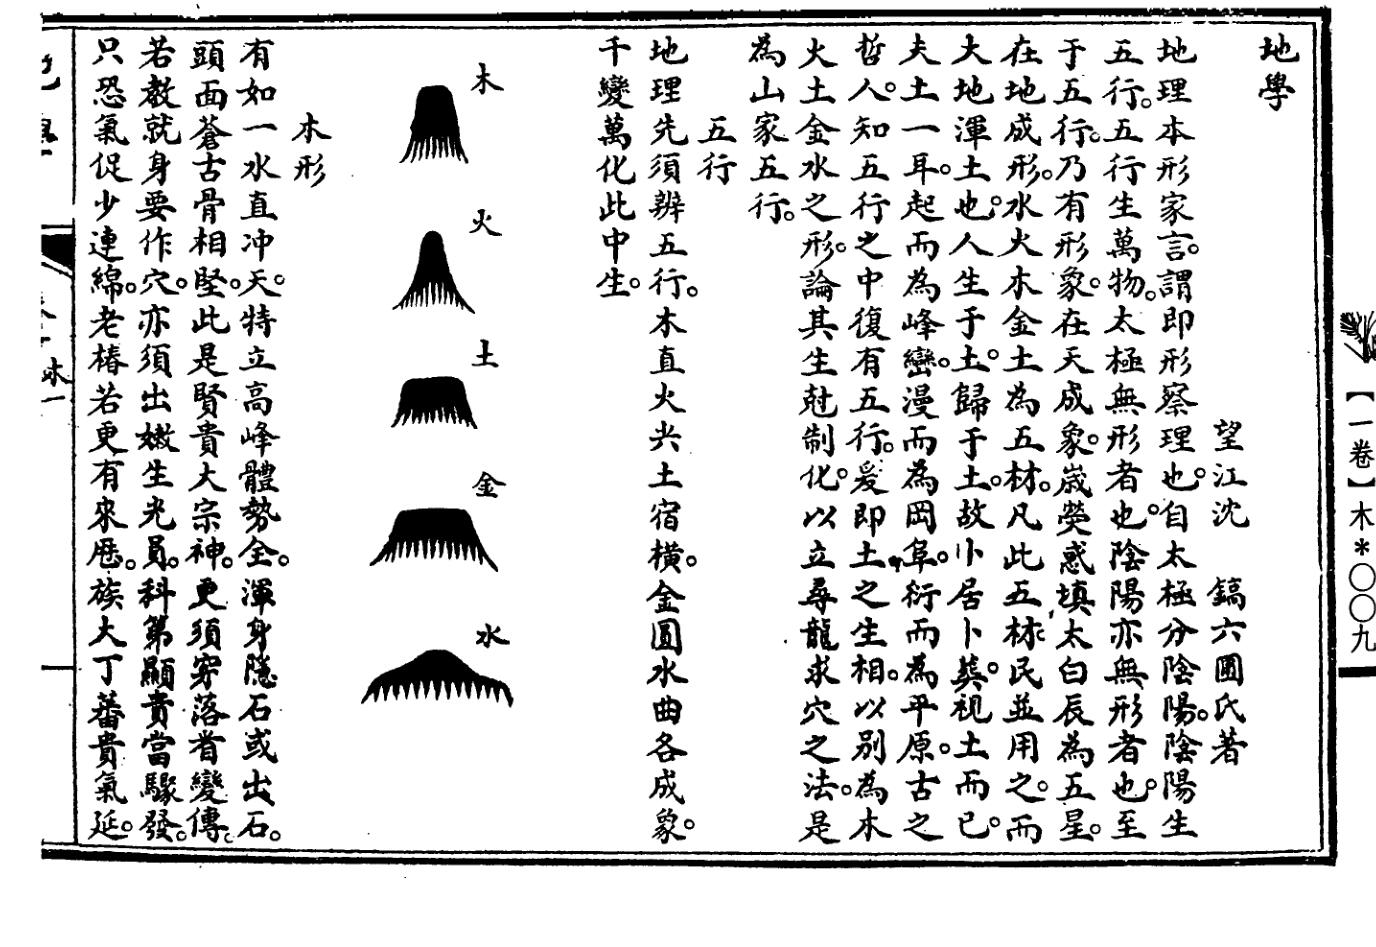 地學
望江沈鎬六圃氏著
地理本形家言。謂即形察理也。自太極分陰陽。陰陽生
五行。五行生萬物。太極無形者也。陰陽亦無形者也。至
于五行。乃有形象。在天成象。歲熒惑填太白辰為五星。
在地成形。水火木金土為五材。凡此五材民並用之。而
大地渾土也。人生于土。歸于土。故卜居卜葬。視土而已。
夫土一耳。起而為峰巒。漫而為岡阜。衍而為平原。古之
哲人。知五行之中復有五行。爰即土之生相。以別為木
火土金水之形。論其生尅制化。以立尋龍求穴之法。是
為山家五行。
五行
地理先須辨五行。木直火尖土宿橫。金圓水曲各成象。
千變萬化此中生。
木
火
土
金
水
木形
有如一水直冲天。特立高峰體勢全。渾身隱石或出石。
頭面蒼古骨相堅。此是賢貴大宗神。更須穿落看變傳。
若教就身要作穴。亦須出嫩生光員。科第顯貴當驟發。
只恐氣促少連綿。老椿若更有來歷。族大丁蕃貴氣延。
【一卷】木*〇〇九